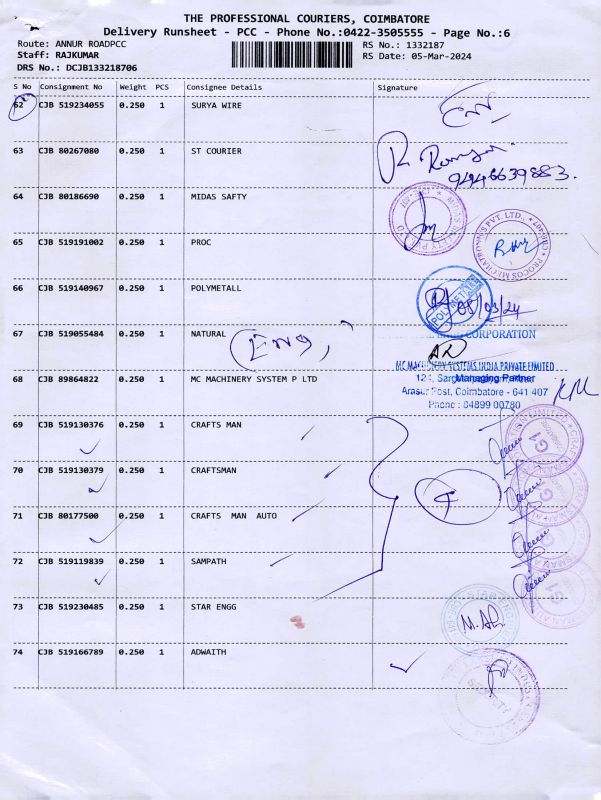 THE PROFESSIONAL COURIERS, COIMBATORE
Delivery Runsheet - PCC - Phone No.:0422-3505555 - Page No.:6
Route: ANNUR ROADPCC
RS No.: 1332187
Staff: RAJKUMAR
RS Date: 05-Mar-2024
DRS No.: DCJB133218706
S No Consignment No Weight PCS Consignee Details Signature
62 CJB 519234055 0.250 1 SURYA WIRE
63 CJB 80267080 0.250 1 ST COURIER
64 CJB 80186690 0.250 1 MIDAS SAFTY
65 CJB 519191002 0.250 1 PROC
66 CJB 519140967 0.250 1 POLYMETALL
67 CJB 519055484 0.250 1 NATURAL
CORPORATION
MC MACHINERY SYSTEMS INDIA PRIVATE LIMITED
68 CJB 89864822 0.250 1 MC MACHINERY SYSTEM P LTD
Managing Partner
Arasur Post, Coimbatore - 641 407
Phone : 84899 00780
69 CJB 519130376 0.250 1 CRAFTS MAN
70 CJB 519130379 0.250 1 CRAFTSMAN
71 CJB 80177500 0.250 1 CRAFTS MAN AUTO
72 CJB 519119839 0.250 1 SAMPATH
73 CJB 519230485 0.250 1 STAR ENGG
74 CJB 519166789 0.250 1 ADWAITH